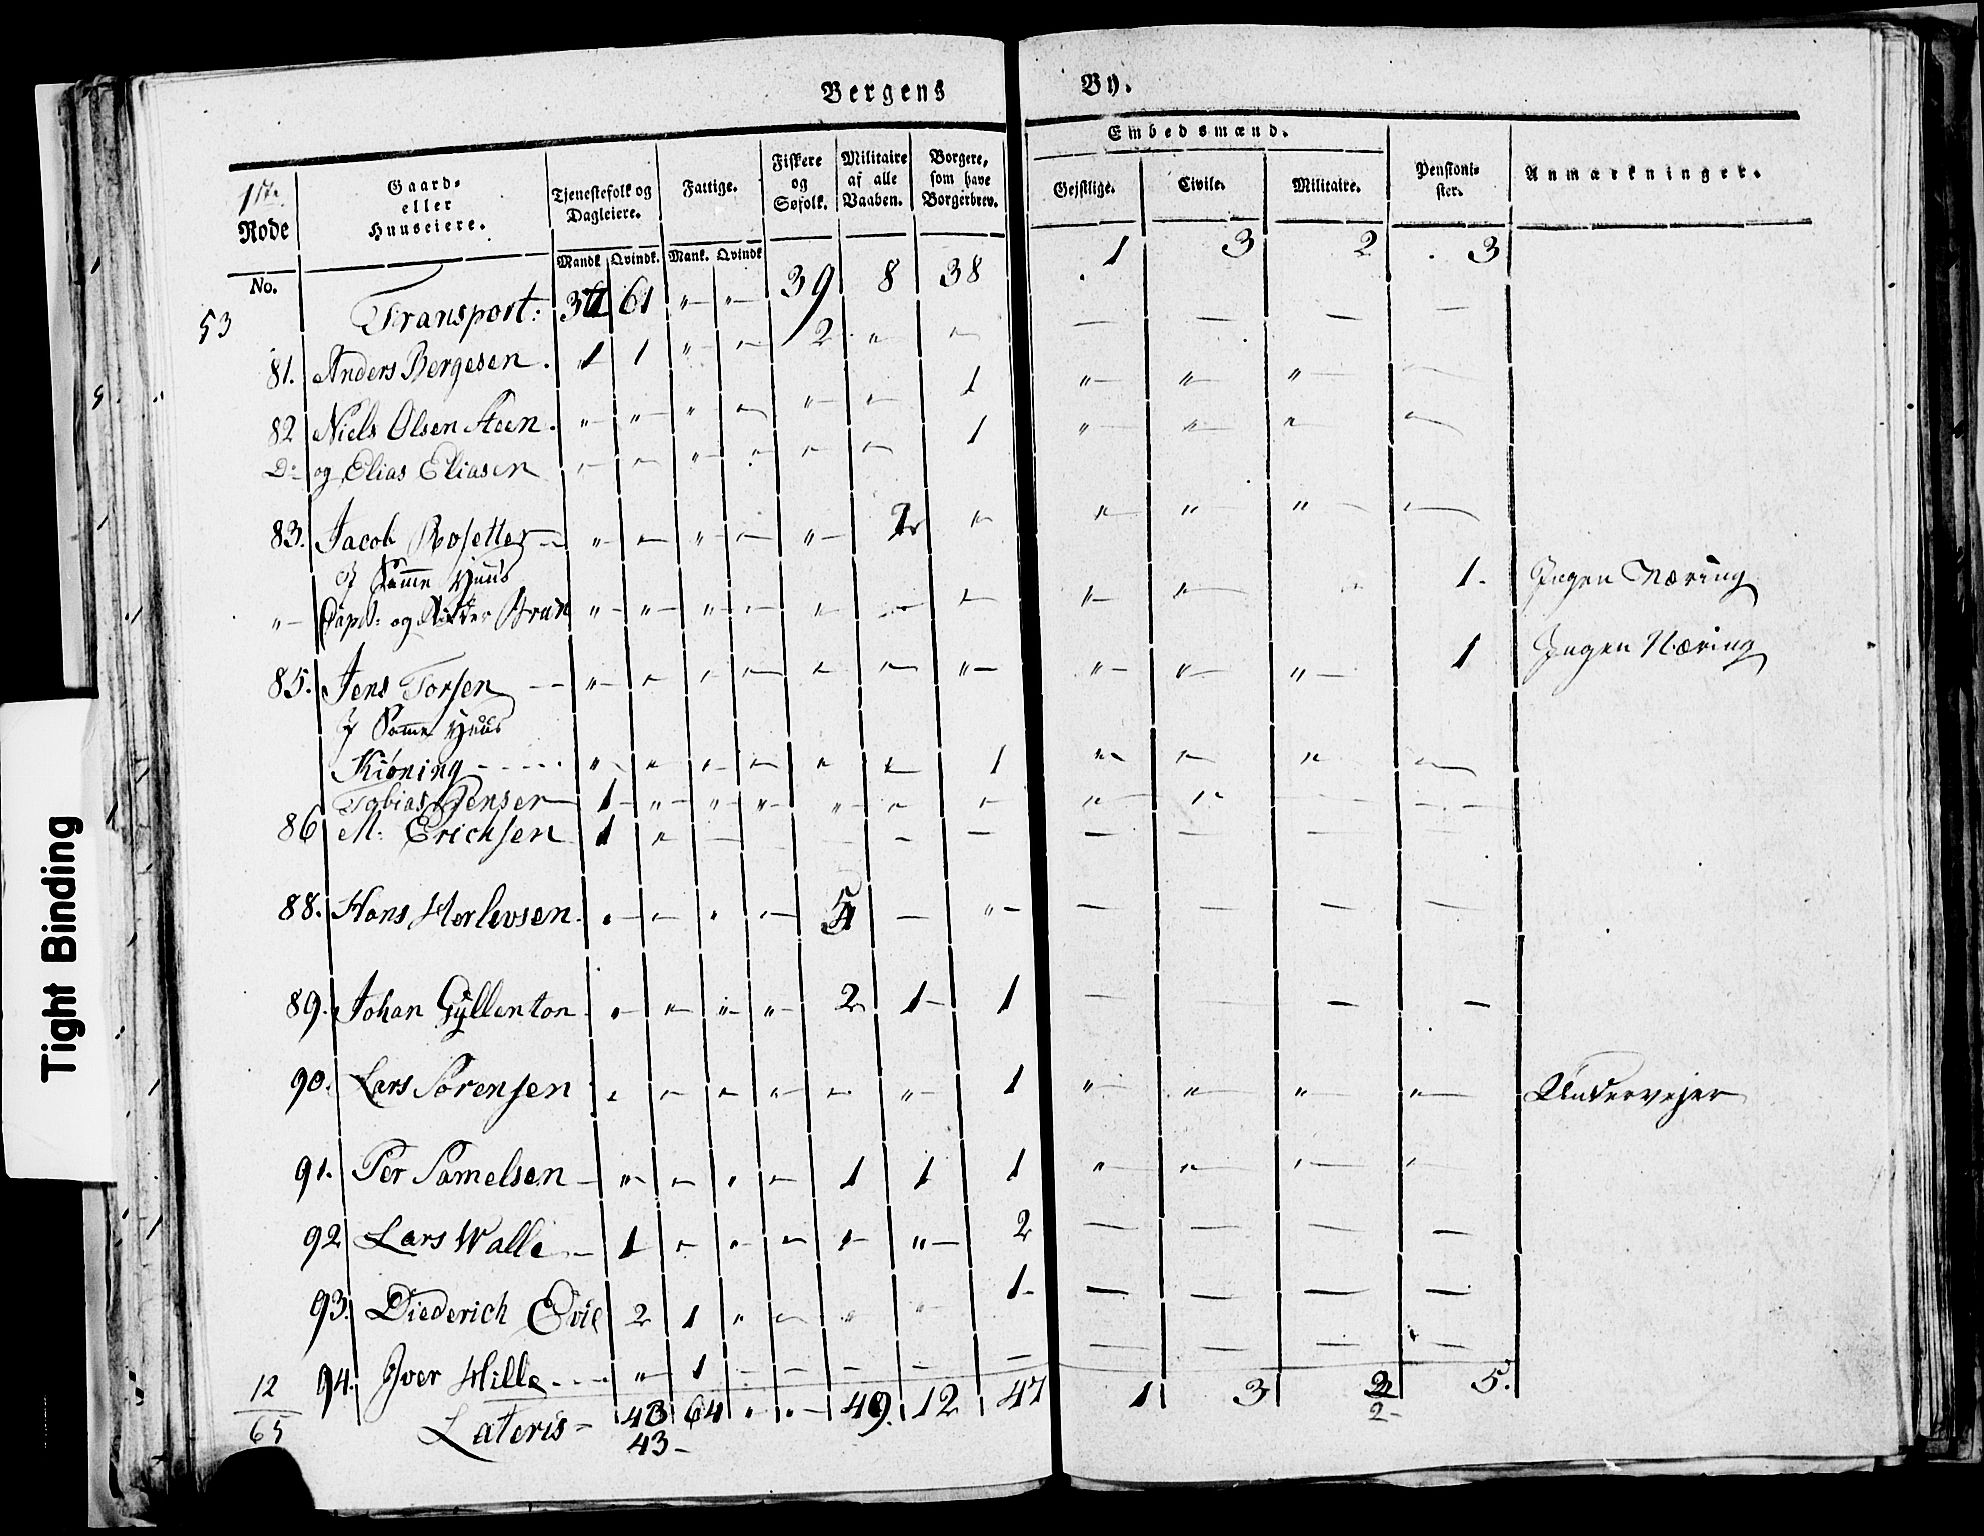 Bergens By.
1ste Rode No.
Gaard- eller Huuseiere.
Tjenestefolk og Dagleiere. Mandk Qvindk.
Fattige. Mank. Qvindk
Fiskere og Søfolk.
Militaire af alle Vaaben.
Borgere, som have Borgerbrev.
Embedsmænd.
Gejstlige. Civile. Militaire.
Pensioni- ster.
Anmærkninger.
53 Transport: 61 " " 39 8 38 1 3 2 3
81. Anders Bergesen. 1 1 " " 2 " " — — — —
82 Niels Olsen Steen. " " " " " " 1 " " " "
Do og Elias Eliasen " " " " " " 1 " " " "
83. Jacob Rosetter " " " " " 2 " " " " "
I Samme Huus
" Capt: og Ridder " " " " " " " " " " 1. Ingen Næring
85. Jens Torsen " " " " " " " " " " 1 Ingen Næring
I Samme Huus
Kiöning " " " " " " 1 " " " "
Tobias Jensen 1 " " " " " " " " — —
86 M: Erichsen 1 " — — — — — — — —
88. Hans Herlevsen " " " " 5 — " — — — —
89. Johan Gyllenton " " " " 2 1 1 — — — —
90. Lars Sørensen " " " " " " 1 " " " " Undervejer
91. Per Samelsen " " " " 1 1 1 " " " "
92 Lars Walle 1 " " " " " 2 — — — —
93. Diederich Evil 2 1 " " " " 1 — — — —
94. Iver Hille " 1 — — — — — — — —
12
65
Lateris 43 64 " " 49. 12 47 1 3 2 5.
43 2
Tight Binding